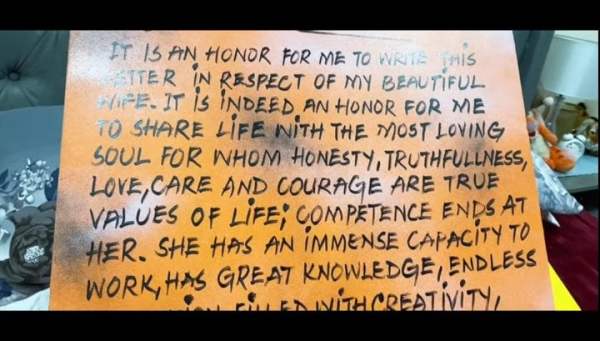 IT IS AN HONOR FOR ME TO WRITE THIS
LETTER IN RESPECT OF MY BEAUTIFUL
WIFE. IT IS INDEED AN HONOR FOR ME
TO SHARE LIFE WITH THE MOST LOVING
SOUL FOR WHOM HONESTY, TRUTHFULLNESS,
LOVE, CARE AND COURAGE ARE TRUE
VALUES OF LIFE; COMPETENCE ENDS AT
HER. SHE HAS AN IMMENSE CAPACITY TO
WORK, HAS GREAT KNOWLEDGE, ENDLESS
FILLED WITH CREATIVITY,